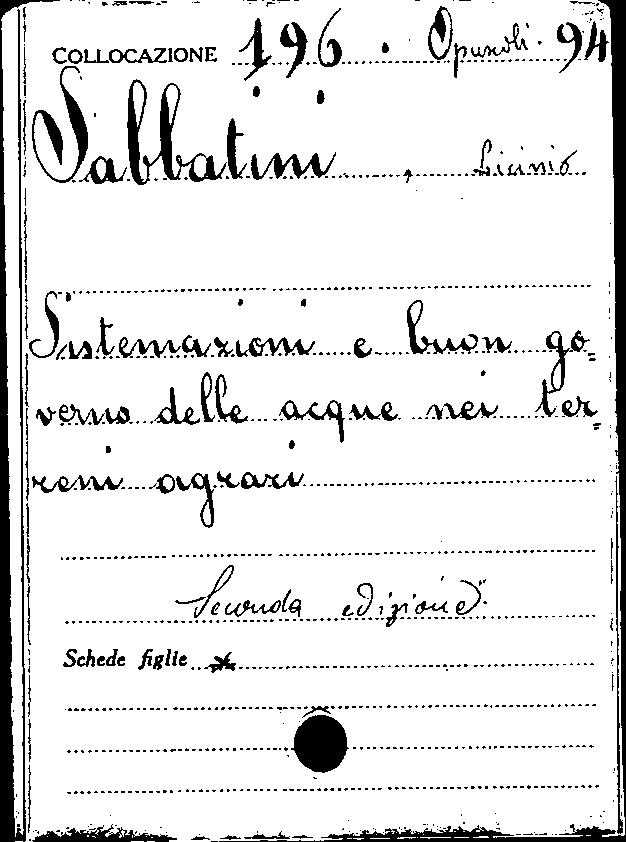 COLLOCAZIONE 196 . Opuscoli. 94
Sabbatini , Licinio
Sistemazioni e buon go=
verno delle acque nei ter=
reni agrari
Seconda edizione.
Schede figlie